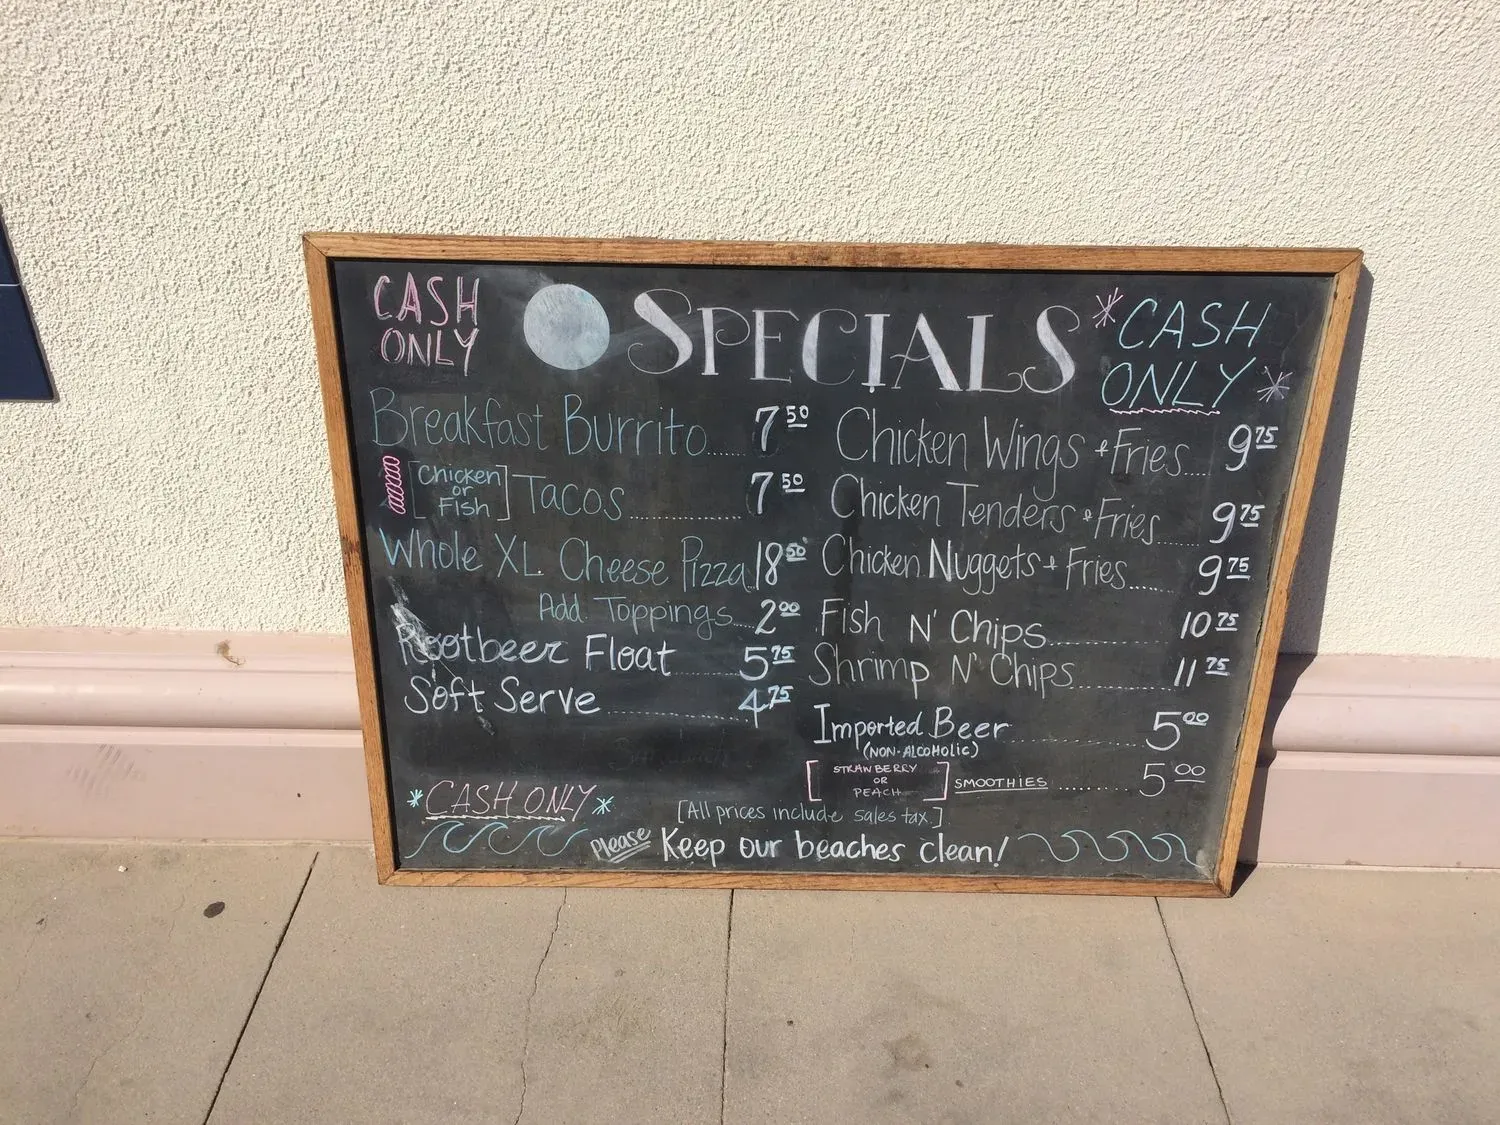 CASH
ONLY
SPECIALS
*CASH
ONLY*
Breakfast Burrito...... 7 50
[Chicken or Fish] Tacos .............. 7 50
Whole XL Cheese Pizza 18 50
Add Toppings.... 2 00
Rootbeer Float .......... 5 75
Soft Serve .............. 4 75
Chicken Wings + Fries.... 9 75
Chicken Tenders + Fries...... 9 75
Chicken Nuggets + Fries...... 9 75
Fish N' Chips.............. 10 75
Shrimp N' Chips.............. 11 75
Imported Beer .............. 5 00
(NON-ALCOHOLIC)
[STRAWBERRY OR PEACH] SMOOTHIES ......... 5 00
*CASH ONLY*
[All prices include sales tax.]
Please Keep our beaches clean!